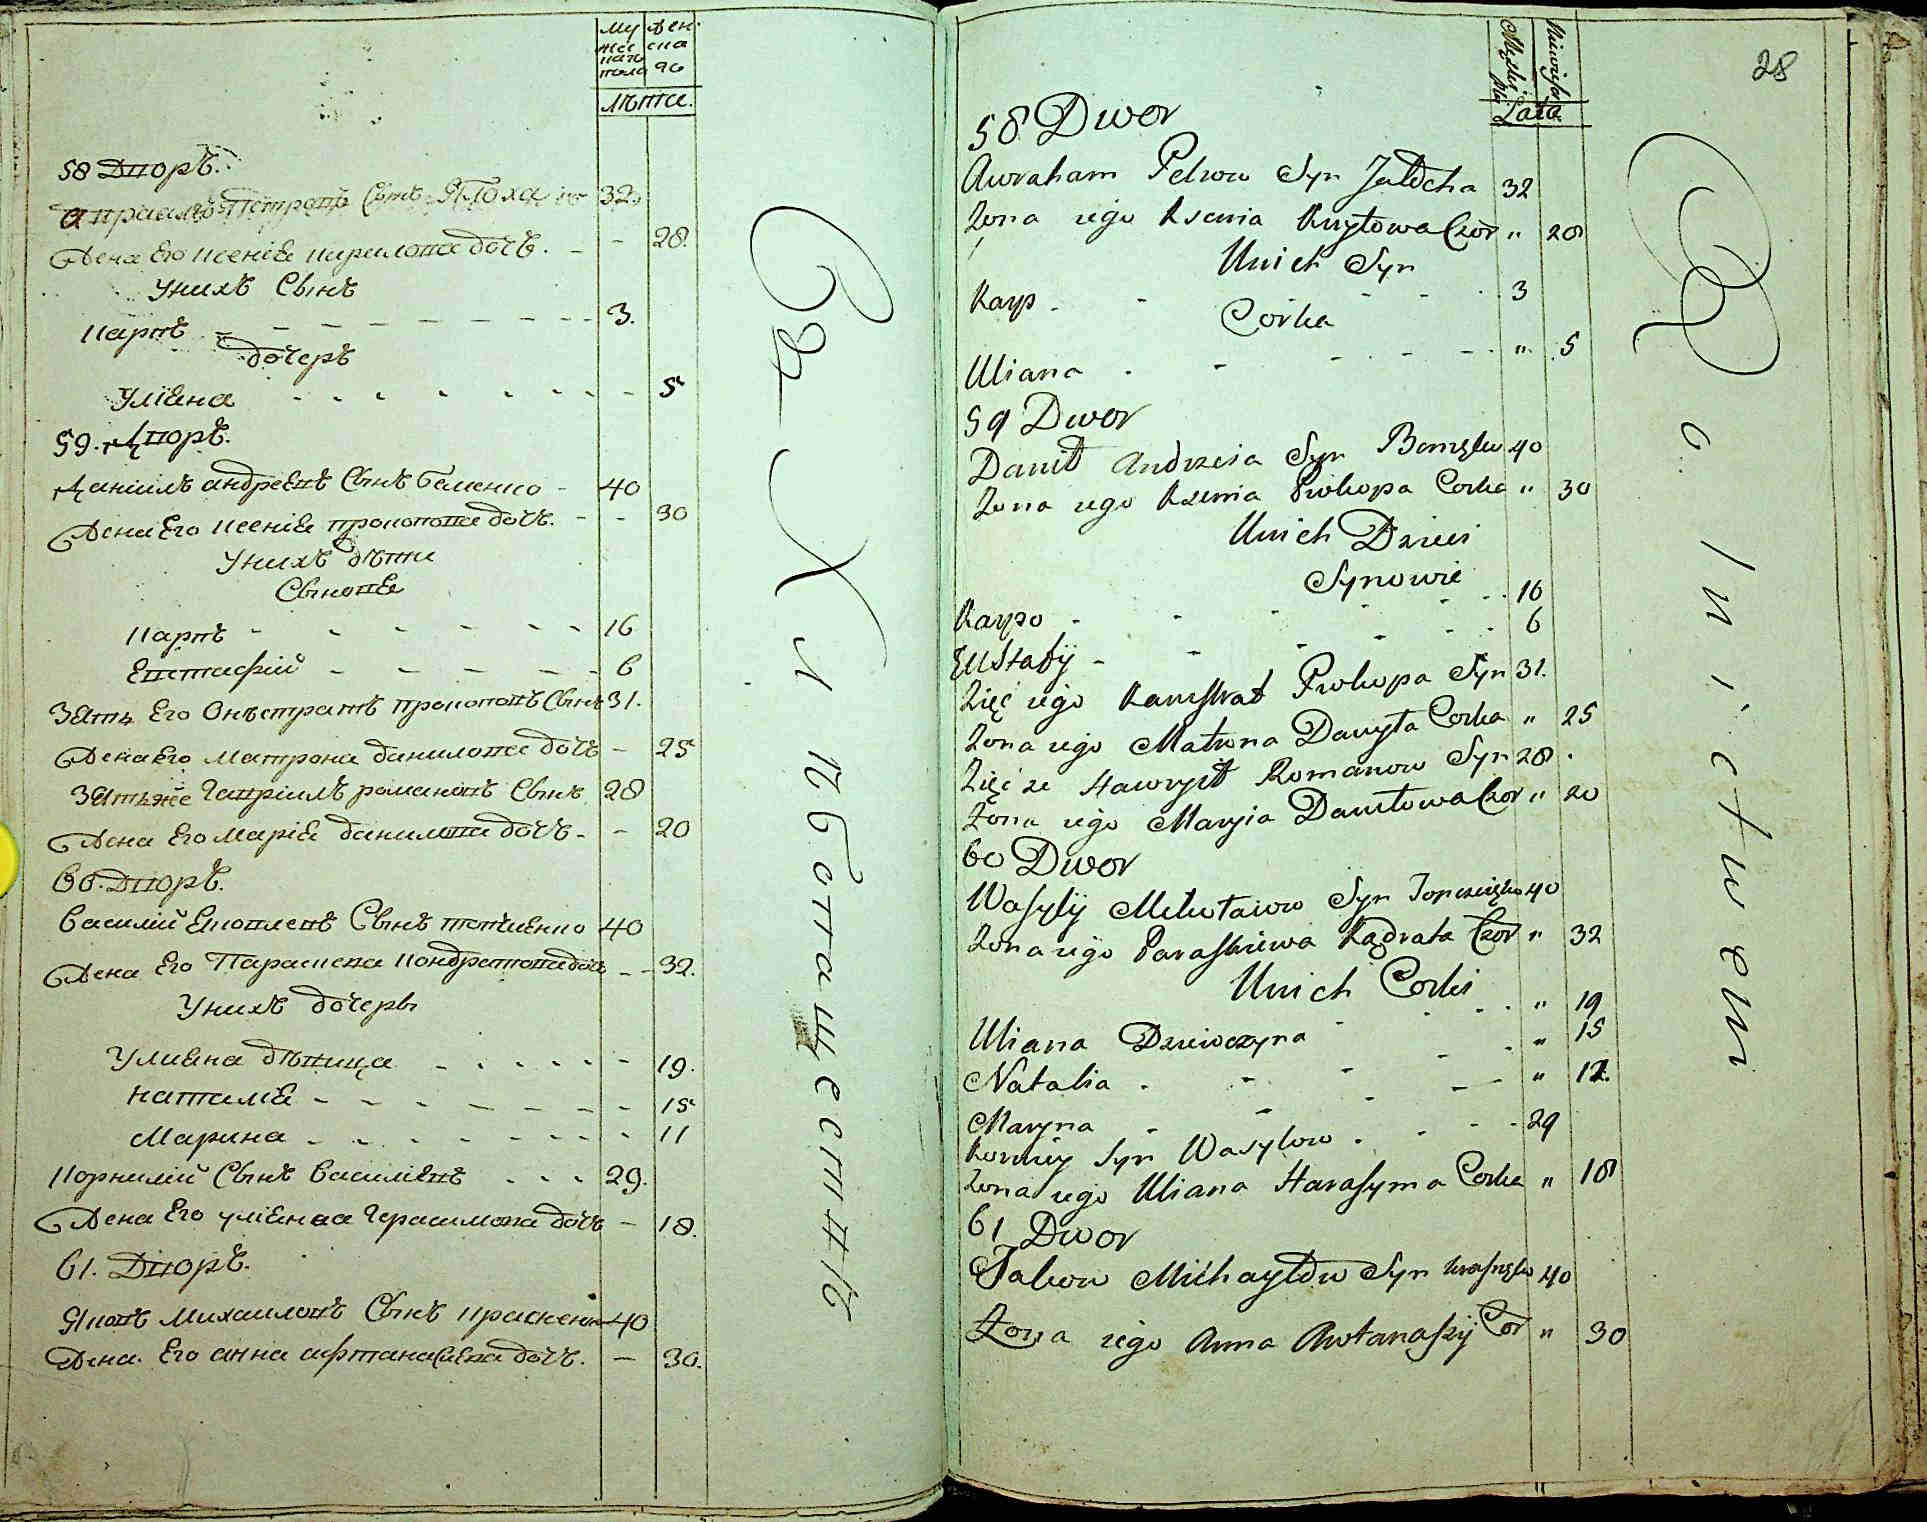 Му Жен
жес ска
каго го
пола
Лѣта.
58 Дворъ.
Авраамъ Петровъ Сынъ
32
Жена Его Ксенія Кирилова дочъ. - - 28.
Унихъ Сынъ
Карпъ - - - - - - - - 3.
дочеръ
Уліяна - - - - - - - - 5
59. Дворъ.
Даніилъ андреевъ Сынъ Баменко - 40
Жена Его Ксенія прокопова дочъ. - - 30
Унихъ дѣти
Сыновя
Карпъ - - - - - - 16
Евстафій - - - - - 6
Зять Его Онистратъ прокоповъ Сынъ 31.
Жена Его Матрона данилова дочъ - 25
Зять же Гавріилъ романовъ Сынъ 28
Жена Его Марія данилова дочъ - - 20
60. Дворъ.
Василий Сынъ 40
Жена Его Параскева Кондратова доч - - 32.
Унихъ дочеры
Улияна дѣвица - - - - - 19.
наталія - - - - - - - 15
Марина - - - - - - - 11
Корнилий Сынъ Василиевъ . . . 29.
Жена Его улияна Герасимова дочъ - 18.
61. Дворъ.
Яковъ Михаиловъ Сынъ 40
Жена Его анна афтанасиева дочъ. - 30.
Въ Хлѣбопашествѣ
Męska płci
Niewieska
Lata
28
58 Dwor
Awraham Petrow Syn 32
Zona iego Ksenia Kuryłowa Czor " 28
Unich Syn
Karp - - - - - 3
Corka
Uliana - - - - - " 5
59 Dwor
Danił Andreia Syn 40
Zona iego Ksenia Prokopa Corka " 30
Unich Dzieci
Synowie
Karpo - - - - 16
Eustafij - - - - 6
Zięć iego Prokopa Syn 31.
Zona iego Matrona Danyła Corka " 25
Zięć ze Hawrył Romanow Syn 28.
Zona iego Maryia Daniłowa Czor " 20
60 Dwor
Wasylij Syn 40
Zona iego Paraskiewa Kądrata Czor " 32
Unich Corki
Uliana Dziewczyna - - - " 19
Natalia - - - - " 15
Maryna - - - - " 12.
Korniey Syn Wasylow - - - 29
Zona iego Uliana Harasyma Corka " 18
61 Dwor
Jakow Michayłow Syn 40
Zona iego Anna Awtanasij Cor " 30
Rolnictwem